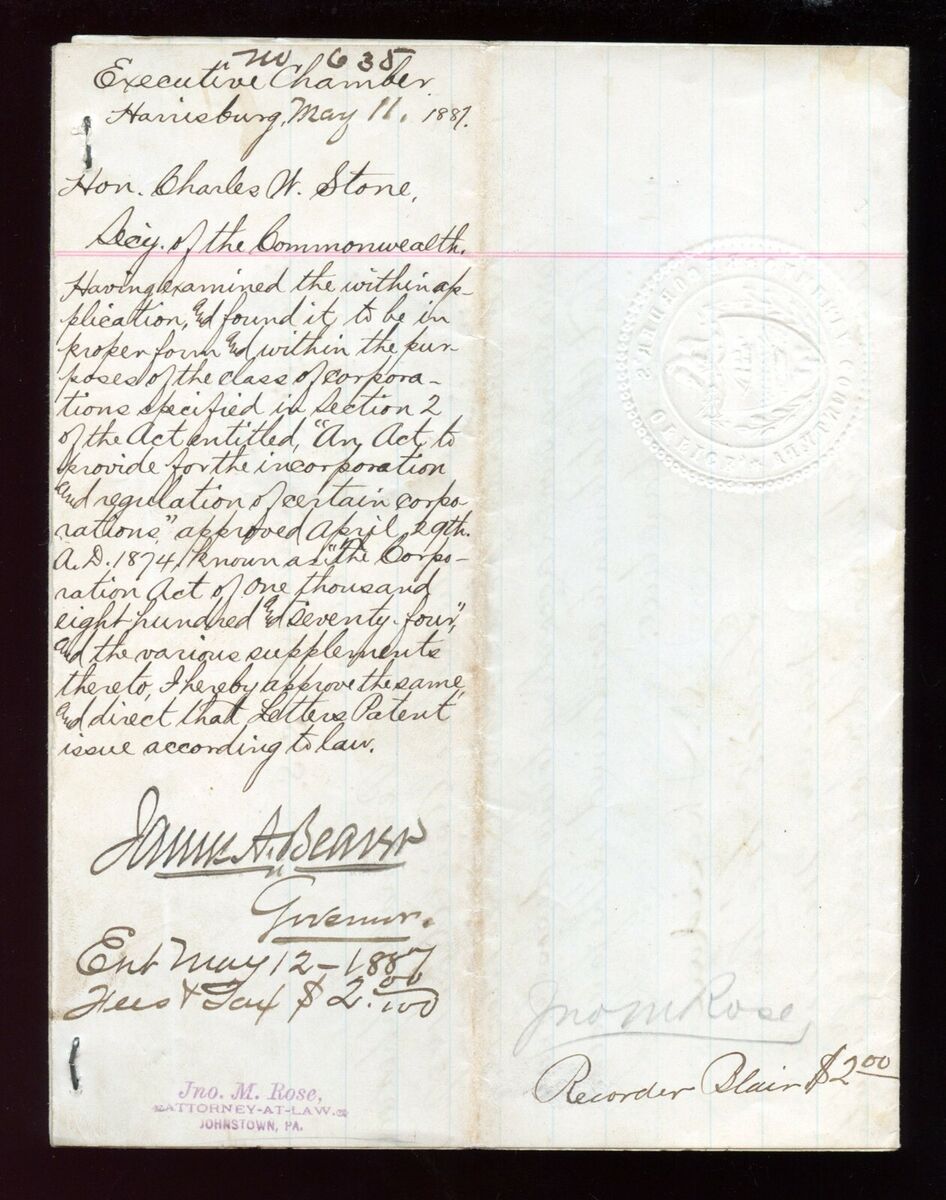 No 635
Executive Chamber.
Harrisburg, May 11. 1887.
Hon. Charles W. Stone,
Secy. of the Commonwealth.
Having examined the within ap-
plication, and found it to be in
proper form and within the pur-
poses of the class of corpora-
tions specified in Section 2
of the Act entitled, "An Act to
provide for the incorporation
and regulation of certain corpo-
rations," approved April 29th.
A.D. 1874, known as "The Corpo-
ration Act of one thousand
eight hundred and seventy-four,"
and the various supplements
thereto, I hereby approve the same,
and direct that Letters Patent
issue according to law.
James A. Beaver
Governor.
Ent May 12-1887
Fees & Tax $2.00/100
Jno. M. Rose,
ATTORNEY-AT-LAW.
JOHNSTOWN, PA.
Jno M Rose,
Recorder Blair $2.00